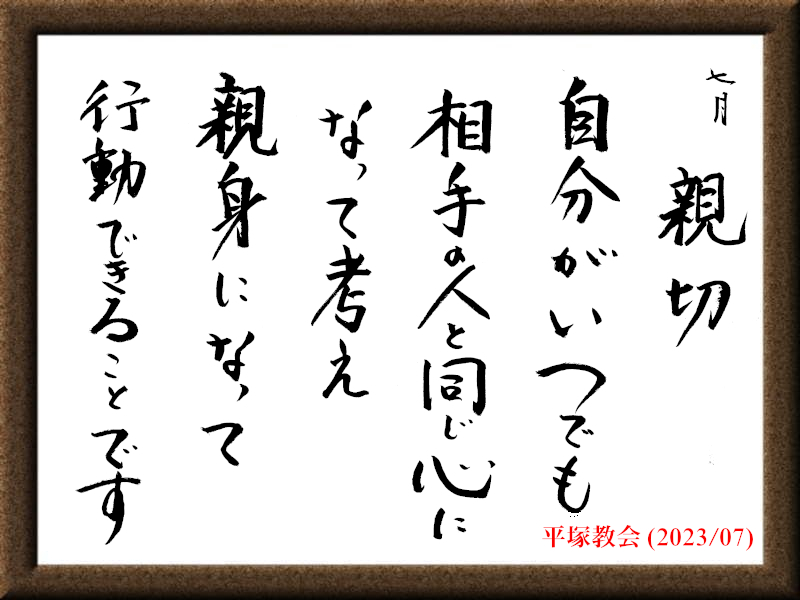 七月
親切
自分がいつでも
相手の人と同じ心に
なって考え
親身になって
行動できることです
平塚教会 (2023/07)